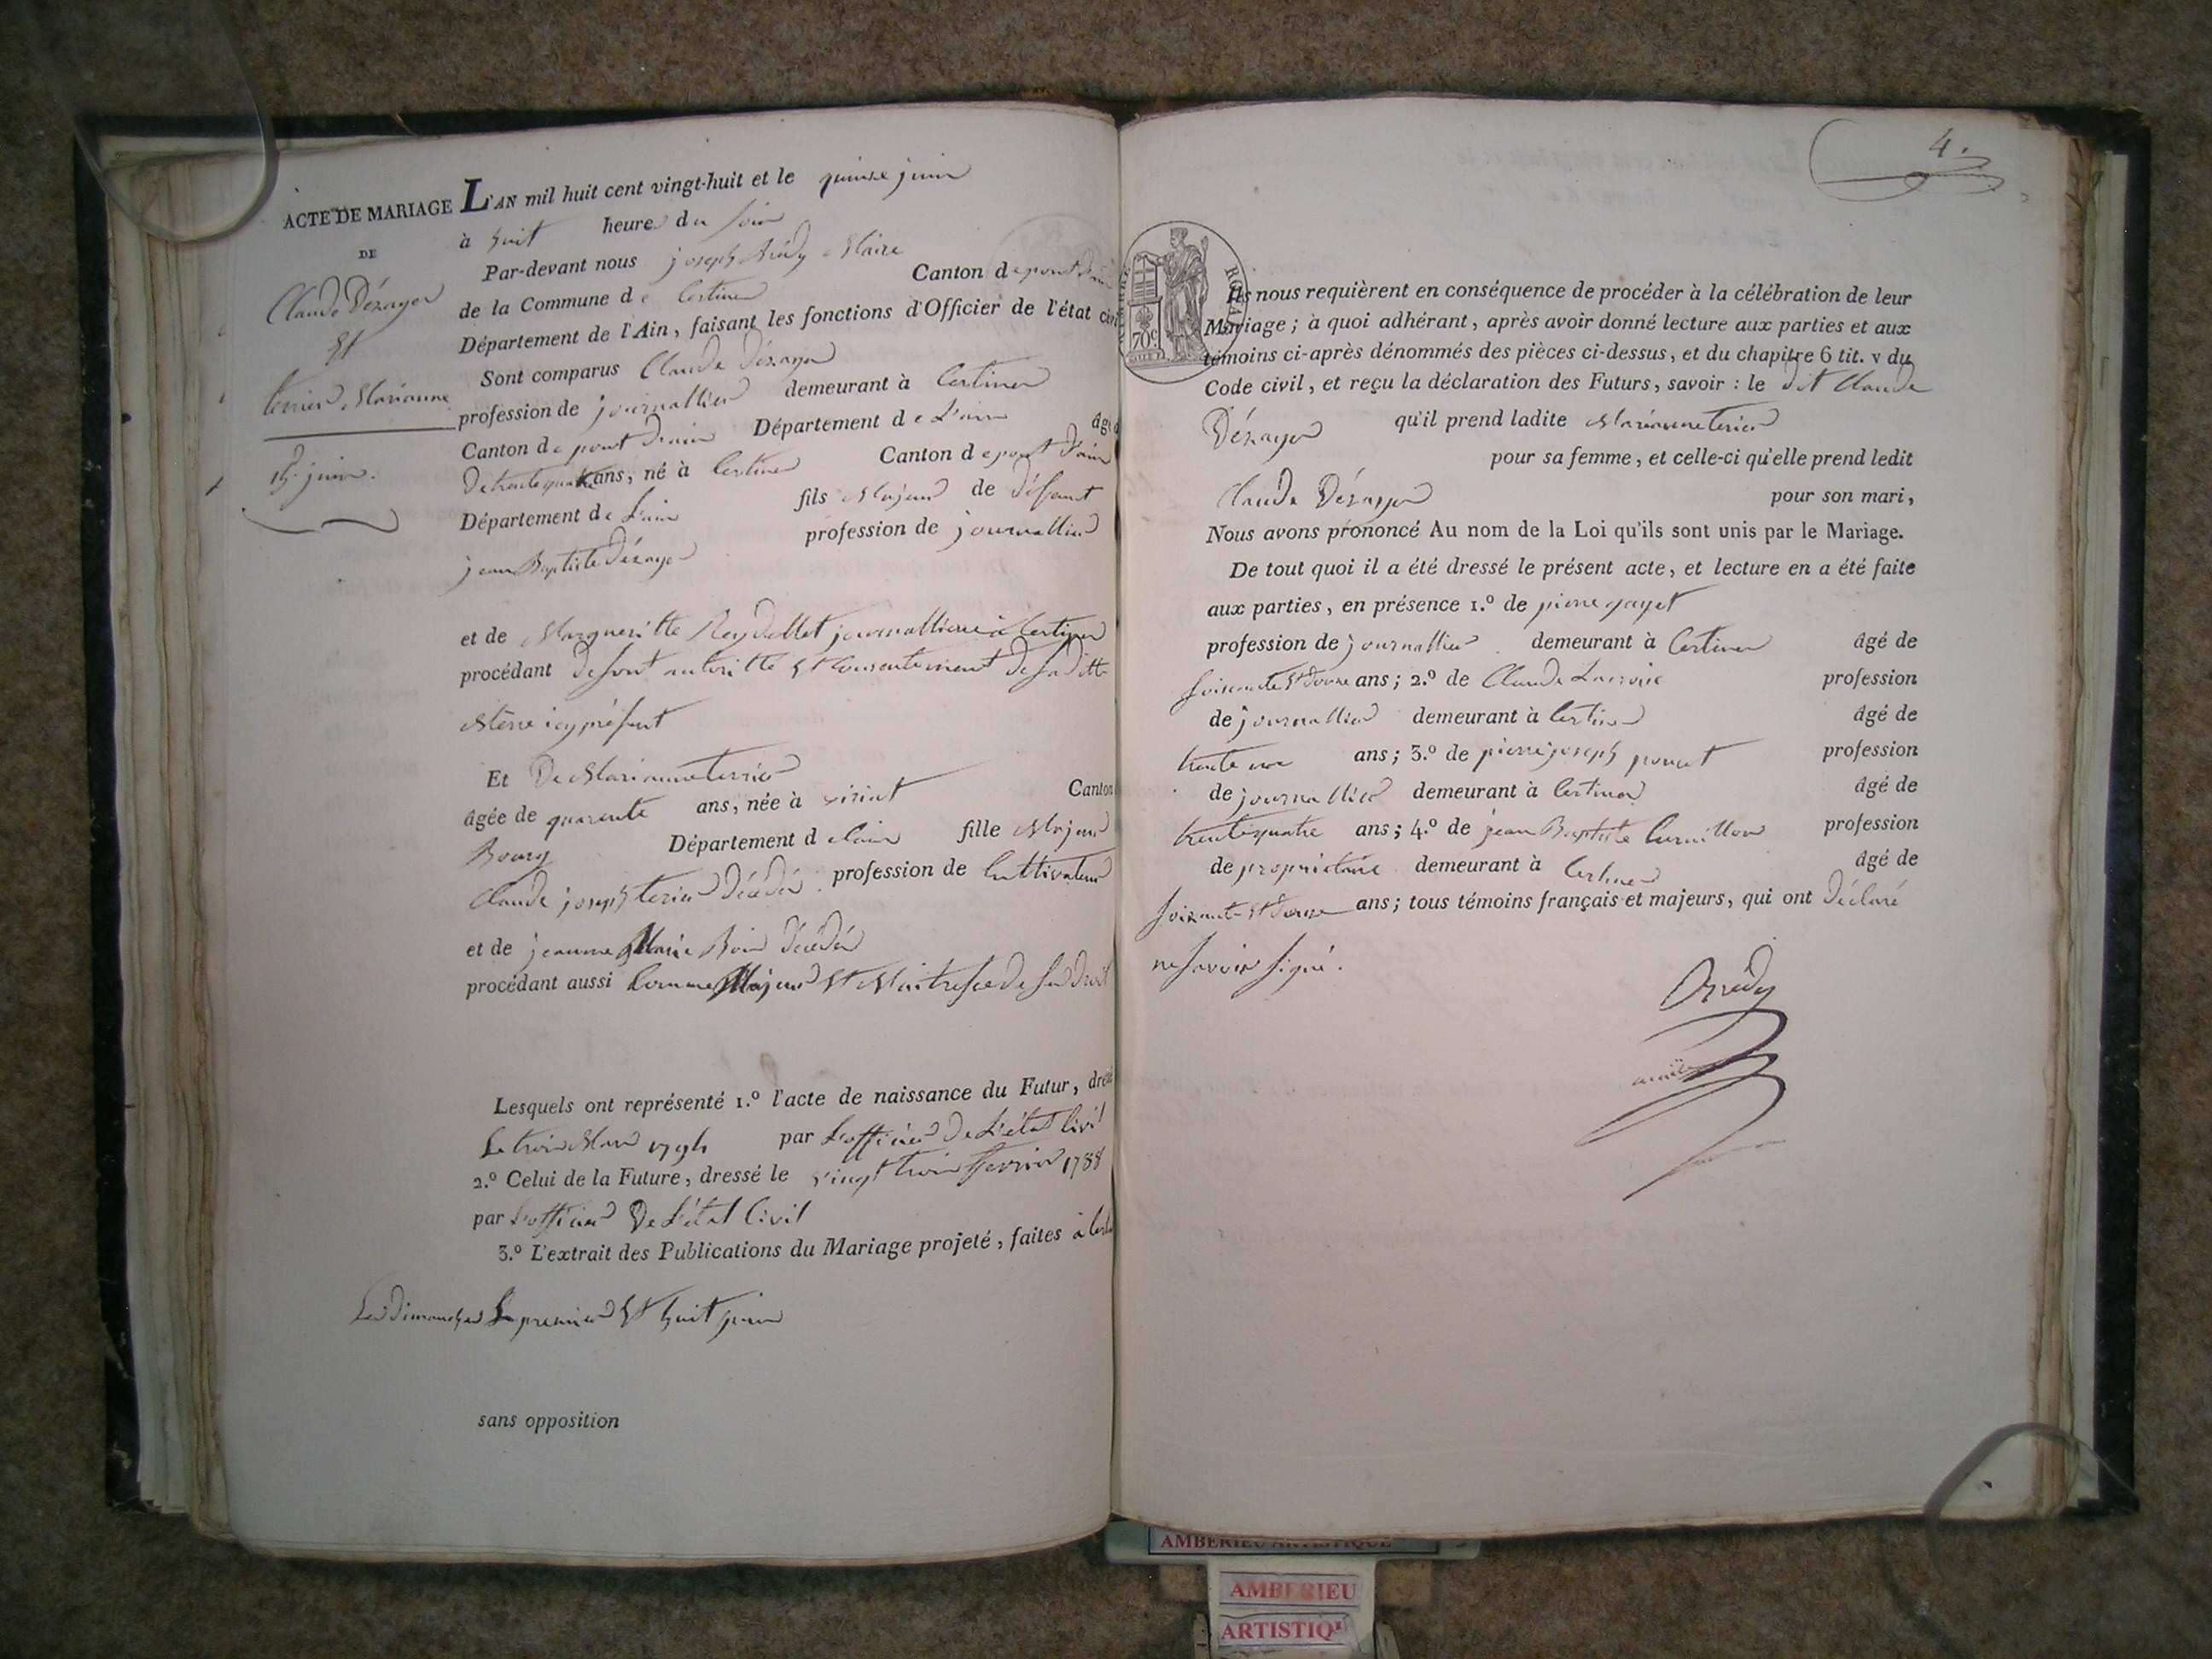 ACTE DE MARIAGE
DE
Claude Dézayer
Et
terrier Marianne
15 juin.
L'AN mil huit cent vingt-huit et le quinze juin
à huit heures du soir
Par-devant nous joseph Maire
de la Commune de Certines Canton de pont d'ain
Département de l'Ain, faisant les fonctions d'Officier de l'état civil
Sont comparus Claude Dézayer
profession de journallier demeurant à Certines
Canton de pont d'ain Département de L'ain âgé
de trente quatre ans, né à Certines Canton de pont d'ain
Département de L'ain fils Majeur de défeunt
jean Baptiste Dézayer profession de journallier
et de Margueritte Reydellet journalliere à Certines
procédant de sont autoritté et Consentement de sa ditte
Mère icy présent
Et De Marianne terrier
âgée de quarente ans, née à viriat Canton
Bourg Département de lain fille Majeur
Claude joseph terier Décédé profession de Cultivateur
et de jeanne Marie Décédée
procédant aussi Comme Majeur et Maitresse de ses Droit
Lesquels ont représenté 1.º l'acte de naissance du Futur, dressé
Le trois Mars 1794 par L'officier De L'état Civil
2.º Celui de la Future, dressé le vingt trois fevrier 1788
par L'officier De L'état Civil
3.º L'extrait des Publications du Mariage projeté, faites à
Les Dimanches Le premier Et huit juin
sans opposition
4.
ROYAL
70c
Ils nous requièrent en conséquence de procéder à la célébration de leur
Mariage ; à quoi adhérant, après avoir donné lecture aux parties et aux
témoins ci-après dénommés des pièces ci-dessus, et du chapitre 6 tit. v du
Code civil, et reçu la déclaration des Futurs, savoir : le dit Claude
Dézayer qu'il prend ladite Marianne terier
pour sa femme, et celle-ci qu'elle prend ledit
Claude Dézayer pour son mari,
Nous avons prononcé Au nom de la Loi qu'ils sont unis par le Mariage.
De tout quoi il a été dressé le présent acte, et lecture en a été faite
aux parties, en présence 1.º de pierre gayet
profession de journallier demeurant à Certines âgé de
soisente et douze ans ; 2.º de Claude Lacroix profession
de journallier demeurant à Certines âgé de
trente ans ; 3.º de pierre joseph poncet profession
de journallier demeurant à Certines âgé de
trente quatre ans ; 4.º de jean Baptiste profession
de propriétaire demeurant à Certines âgé de
soixante et douze ans ; tous témoins français et majeurs, qui ont Déclaré
ne savoir signé.
AMBERIEU ARTISTIQUE
AMBERIEU
ARTISTIQU